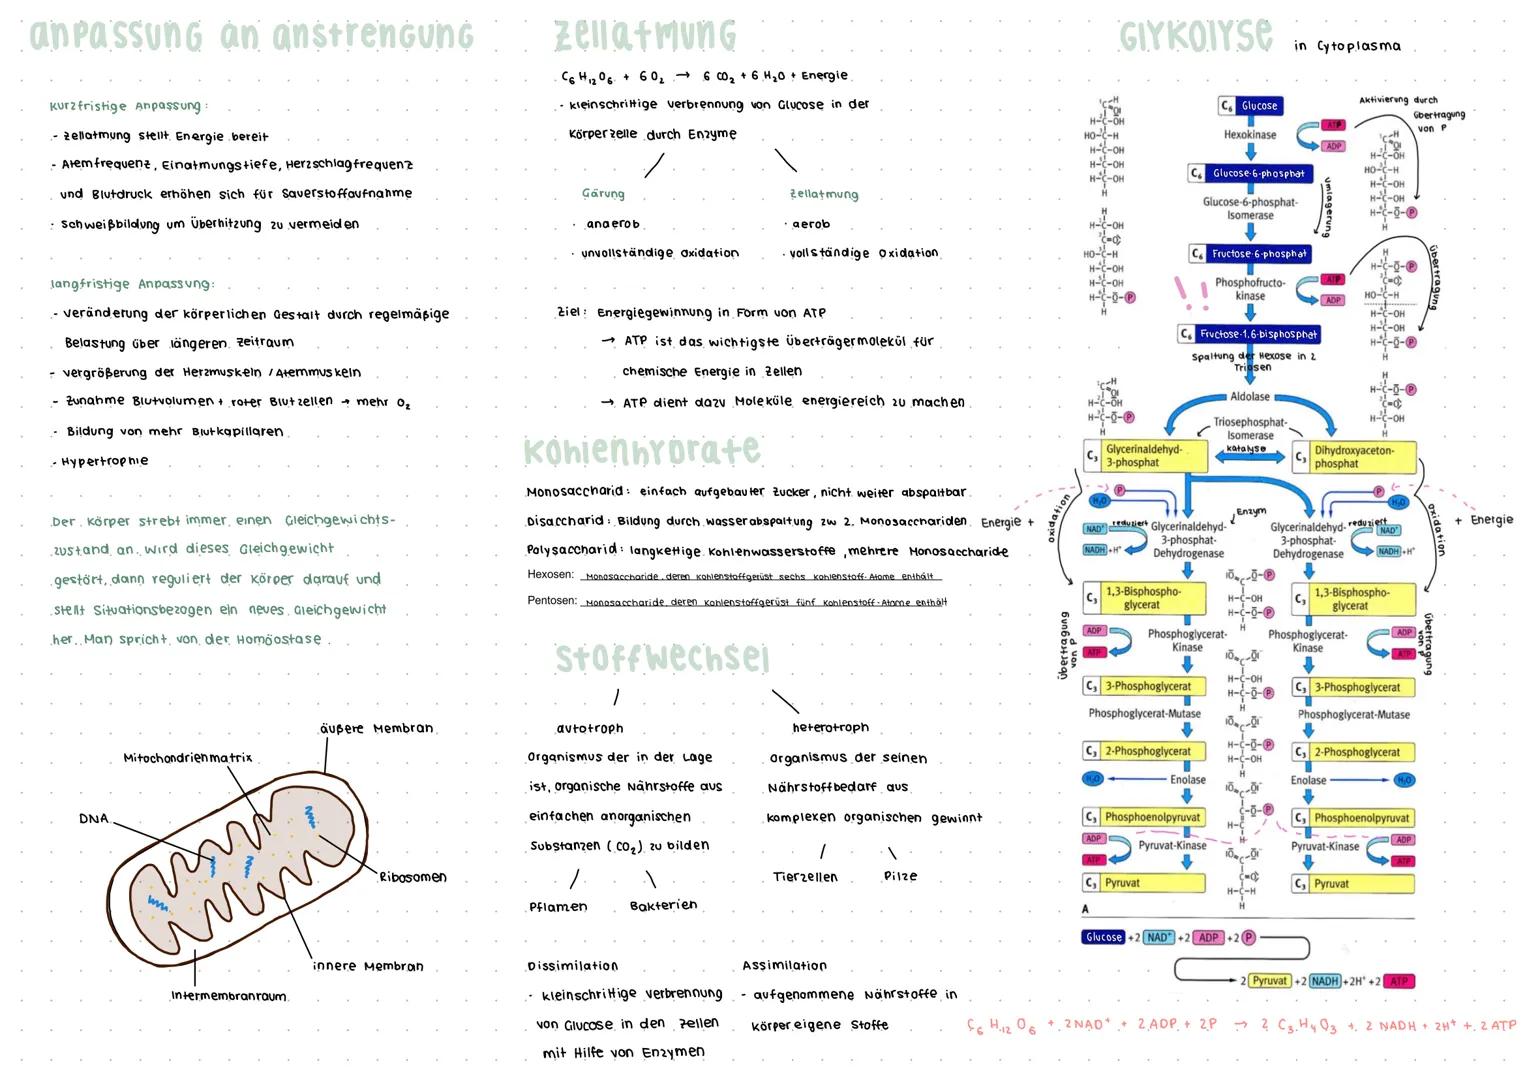 anpassung an anstrengung
kurzfristige Anpassung:
- Zellatmung stellt Energie bereit
- Atemfrequenz, Einatmungstiefe, Herzschlagfrequenz
und Blutdruck erhöhen sich für Sauerstoffaufnahme
- Schweißbildung um Überhitzung zu vermeiden
langfristige Anpassung:
- Veränderung der körperlichen Gestalt durch regelmäßige
Belastung über längeren Zeitraum
- Vergrößerung der Herzmuskeln / Atemmuskeln
- Zunahme Blutvolumen + roter Blutzellen → mehr O₂
- Bildung von mehr Blutkapillaren
- Hypertrophie
Der Körper strebt immer einen Gleichgewichts-
zustand an. Wird dieses Gleichgewicht
gestört, dann reguliert der Körper darauf und
stellt Situationsbezogen ein neues Gleichgewicht
her. Man spricht von der Homöostase.
äußere Membran
Mitochondrienmatrix
DNA
Ribosomen
innere Membran
Intermembranraum
Zellatmung
C₆H₁₂O₆ + 6O₂ → 6 CO₂ + 6 H₂O + Energie
- kleinschrittige Verbrennung von Glucose in der
Körperzelle durch Enzyme
Gärung
· anaerob
· unvollständige Oxidation
Zellatmung
· aerob
· vollständige Oxidation
Ziel: Energiegewinnung in Form von ATP
→ ATP ist das wichtigste Überträgermolekül für
chemische Energie in Zellen
→ ATP dient dazu Moleküle energiereich zu machen
Kohlenhydrate
Monosaccharid: einfach aufgebauter Zucker, nicht weiter abspaltbar
Disaccharid: Bildung durch Wasserabspaltung zw 2. Monosacchariden
Polysaccharid: langkettige Kohlenwasserstoffe, mehrere Monosaccharide
Hexosen: Monosaccharide, deren Kohlenstoffgerüst sechs Kohlenstoff-Atome enthält
Pentosen: Monosaccharide, deren Kohlenstoffgerüst fünf Kohlenstoff-Atome enthält
Stoffwechsel
autotroph
Organismus der in der Lage
ist, organische Nährstoffe aus
einfachen anorganischen
Substanzen (CO₂) zu bilden
Pflamen
Bakterien
heterotroph
Organismus der seinen
Nährstoffbedarf aus
komplexen organischen gewinnt
Tierzellen
Pilze
Dissimilation
- kleinschrittige Verbrennung
von Glucose in den Zellen
mit Hilfe von Enzymen
Assimilation
- aufgenommene Nährstoffe in
körpereigene Stoffe
Glykolyse in Cytoplasma
C₆ Glucose
Aktivierung durch
Übertragung
von P
Hexokinase
ATP
ADP
C₆ Glucose-6-phosphat
Glucose-6-phosphat-
Isomerase
Umlagerung
C₆ Fructose-6-phosphat
Phosphofructo-
kinase
!!
ATP
ADP
Übertragung
C₆ Fructose-1,6-bisphosphat
Spaltung der Hexose in 2
Triosen
Aldolase
Triosephosphat-
Isomerase
katalyse
C₃ Glycerinaldehyd-
3-phosphat
C₃ Dihydroxyaceton-
phosphat
Energie +
+ Energie
Oxidation
Oxidation
P
H₂O
P
H₂O
Enzym
NAD⁺ reduziert
NADH +H⁺
Glycerinaldehyd-
3-phosphat-
Dehydrogenase
Glycerinaldehyd-
3-phosphat-
Dehydrogenase
reduziert NAD⁺
NADH +H⁺
C₃ 1,3-Bisphospho-
glycerat
C₃ 1,3-Bisphospho-
glycerat
Übertragung
von P
ADP
ATP
Phosphoglycerat-
Kinase
Phosphoglycerat-
Kinase
ADP
ATP
Übertragung
von P
C₃ 3-Phosphoglycerat
C₃ 3-Phosphoglycerat
Phosphoglycerat-Mutase
Phosphoglycerat-Mutase
C₃ 2-Phosphoglycerat
C₃ 2-Phosphoglycerat
H₂O Enolase
Enolase H₂O
C₃ Phosphoenolpyruvat
C₃ Phosphoenolpyruvat
ADP
ATP
Pyruvat-Kinase
Pyruvat-Kinase
ADP
ATP
C₃ Pyruvat
C₃ Pyruvat
A
Glucose +2 NAD⁺ +2 ADP +2 P
2 Pyruvat +2 NADH +2H⁺ +2 ATP
C₆H₁₂O₆ + 2NAD⁺ + 2ADP + 2P → 2 C₃H₄O₃ + 2 NADH + 2H⁺ + 2 ATP